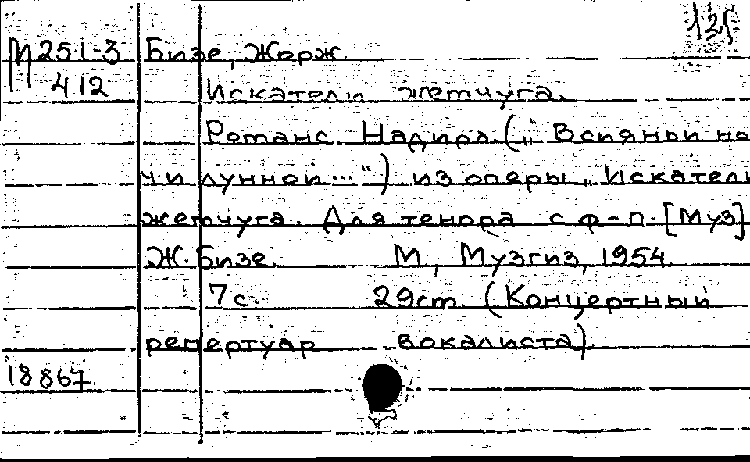 131
М251-3 Бизе, Жорж.
412 Искатели жемчуга.
Романс Надира („В сияньи но
чи лунной..." ) из оперы „Искатели
жемчуга. Для тенора с ф-п. [Муз]
Ж. Бизе. М, Музгиз, 1954.
7с. 29см (Концертный
репертуар вокалиста)
18867